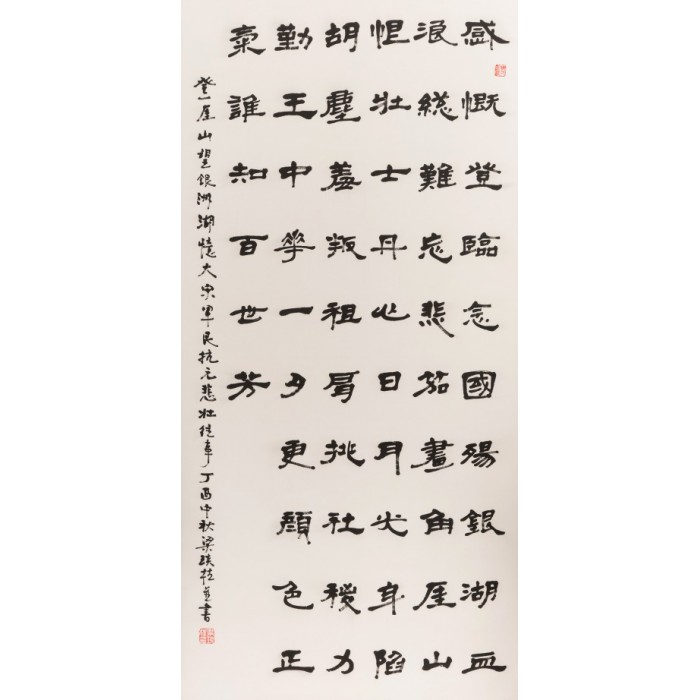 感慨登臨念國殤銀湖血
浪總難忘悲笳畫角厓山
怛壯士丹心日月光身陷
胡塵羞叛祖肩挑社稷力
勤王中華一夕更顏色正
稟誰知百世芳
登厓山望銀洲湖憶大宋軍民抗元悲壯往事丁酉中秋梁並書